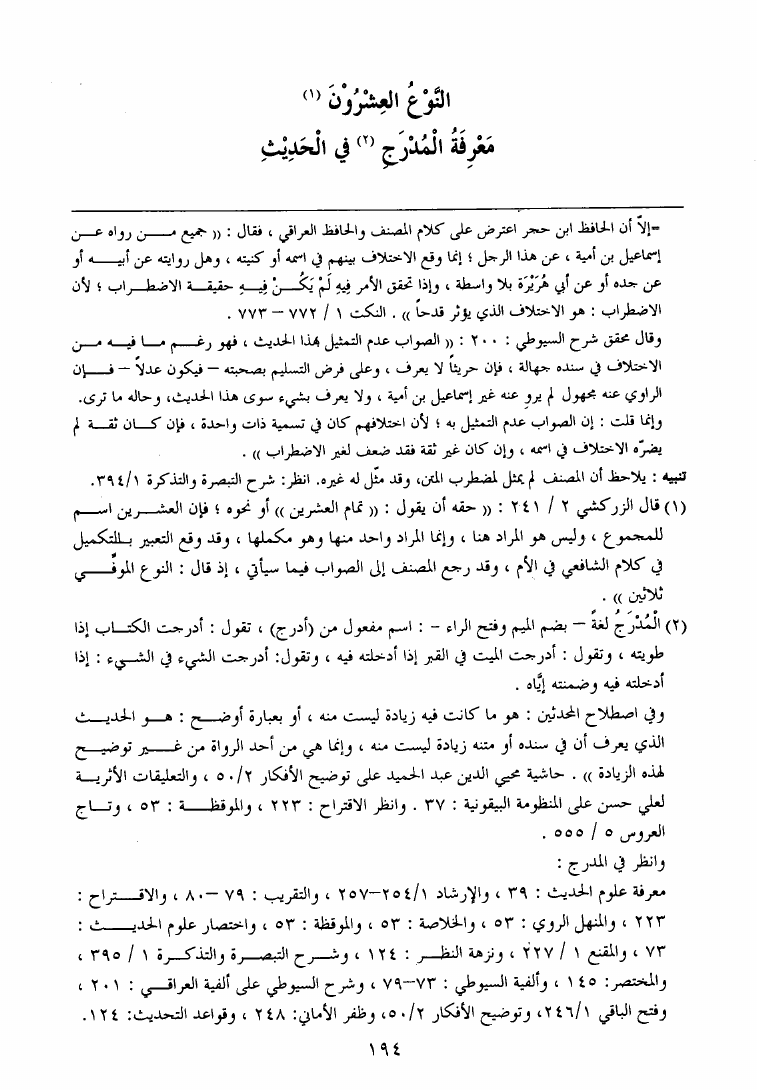 النَّوْعُ العِشْرُوْنَ (١)
مَعْرِفَةُ الْمُدْرَجِ (٢) في الْحَدِيْثِ
=إلاّ أن الحافظ ابن حجر اعترض على كلام المصنف والحافظ العراقي ، فقال : (( جميع مـــن رواه عـــن
إسماعيل بن أمية ، عن هذا الرجل ؛ إنما وقع الاختلاف بينهم في اسمه أو كنيته ، وهل روايته عن أبيـــه أو
عن جده أو عن أبي هُرَيْرَة بلا واسطة ، وإذا تحقق الأمر فِيهِ لَمْ يَكُـــنْ فِيـــهِ حقيقـــة الاضطـــراب ؛ لأن
الاضطراب : هو الاختلاف الذي يؤثر قدحاً )) . النكت ١ / ٧٧٢ – ٧٧٣ .
وقال محقق شرح السيوطي : ٢٠٠ : (( الصواب عدم التمثيل بهذا الحديث ، فهو رغـــم مـــا فيـــه مـــن
الاختلاف في سنده جهالة ، فإن حريثاً لا يعرف ، وعلى فرض التسليم بصحبته – فيكون عدلاً – فـــإن
الراوي عنه مجهول لم يرو عنه غير إسماعيل بن أمية ، ولا يعرف بشيء سوى هذا الحديث، وحاله ما ترى.
وإنما قلت : إن الصواب عدم التمثيل به ؛ لأن اختلافهم كان في تسمية ذات واحدة ، فإن كـــان ثقـــة لم
يضرّه الاختلاف في اسمه ، وإن كان غير ثقة فقد ضعف لغير الاضطراب )) .
تنبيه : يلاحظ أن المصنف لم يمثل لمضطرب المتن، وقد مثّل له غيره. انظر: شرح التبصرة والتذكرة ٣٩٤/١.
(١) قال الزركشي ٢ / ٢٤١ : (( حقه أن يقول : (( تمام العشرين )) أو نحوه ؛ فإن العشـــرين اســـم
للمجموع ، وليس هو المراد هنا ، وإنما المراد واحد منها وهو مكملها ، وقد وقع التعبير بـــالتكميل
في كلام الشافعي في الأم ، وقد رجع المصنف إلى الصواب فيما سيأتي ، إذ قال : النوع الموفّـــي
ثلاثين )) .
(٢) الْمُدْرَجُ لغةً – بضم الميم وفتح الراء - : اسم مفعول من (أدرج) ، تقول : أدرجت الكتـــاب إذا
طويته ، وتقول : أدرجت الميت في القبر إذا أدخلته فيه ، وتقول: أدرجت الشيء في الشـــيء : إذا
أدخلته فيه وضمنته إيَّاه .
وفي اصطلاح المحدثين : هو ما كانت فيه زيادة ليست منه ، أو بعبارة أوضـــح : هـــو الحديـــث
الذي يعرف أن في سنده أو متنه زيادة ليست منه ، وإنما هي من أحد الرواة من غـــير توضيـــح
لهذه الزيادة )) . حاشية محيي الدين عبد الحميد على توضيح الأفكار ٥٠/٢ ، والتعليقات الأثريـــة
لعلي حسن على المنظومة البيقونية : ٣٧ . وانظر الاقتراح : ٢٢٣ ، والموقظـــة : ٥٣ ، وتـــاج
العروس ٥ / ٥٥٥ .
وانظر في المدرج :
معرفة علوم الحديث : ٣٩ ، والإرشاد ٢٥٤/١–٢٥٧ ، والتقريب : ٧٩ –٨٠ ، والاقـــتراح :
٢٢٣ ، والمنهل الروي : ٥٣ ، والخلاصة : ٥٣ ، والموقظة : ٥٣ ، واختصار علوم الحديـــث :
٧٣ ، والمقنع ١ / ٢٢٧ ، ونزهة النظـــر : ١٢٤ ، وشـــرح التبصـــرة والتذكـــرة ١ / ٣٩٥ ،
والمختصر: ١٤٥ ، وألفية السيوطي : ٧٣–٧٩ ، وشرح السيوطي على ألفية العراقـــي : ٢٠١ ،
وفتح الباقي ٢٤٦/١، وتوضيح الأفكار ٥٠/٢، وظفر الأماني: ٢٤٨ ، وقواعد التحديث: ١٢٤.
١٩٤